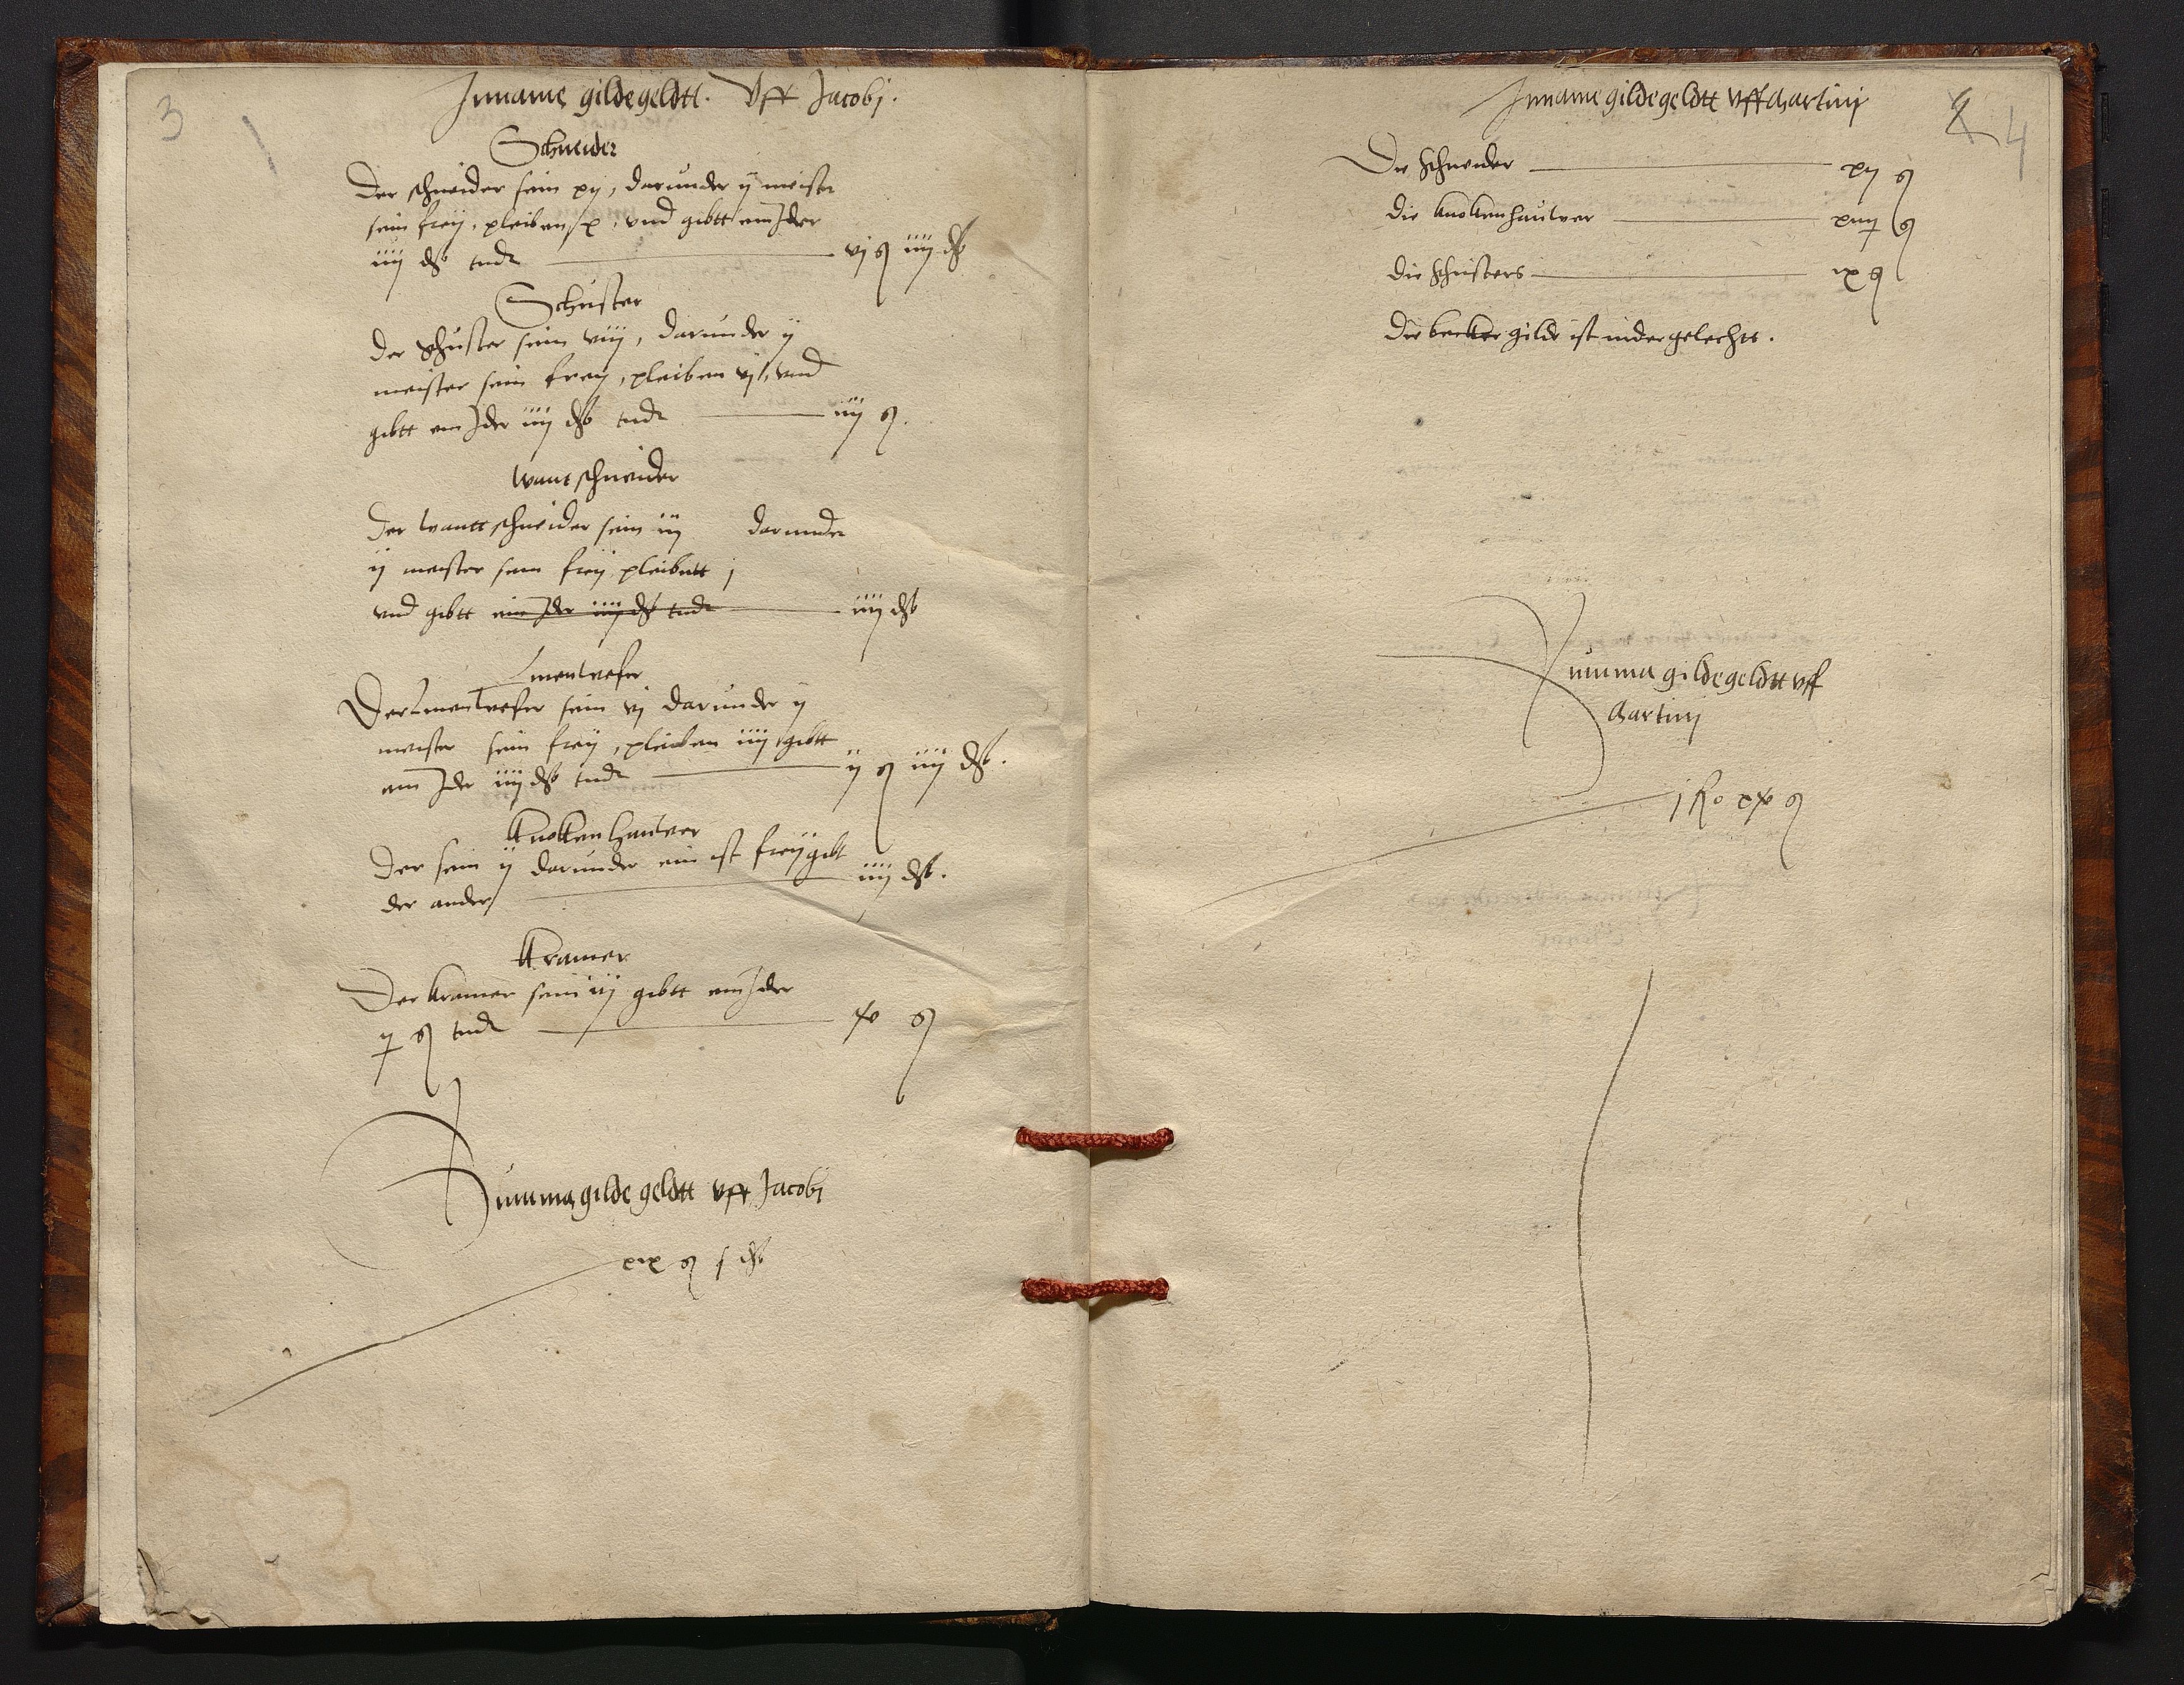 3
Inname gildegeldtt. Vff Jacobj.
Schneider
Der schneider sein xij, darunder ij meister
sein frey, pleiben x, vnd gibtt ein Jder
iiij
vj g iiij
Schuster
Der Schuster sein viij, darunder ij
meister sein frey, pleiben vj, vnd
gibtt ein Jder iiij
iiij g.
Wantschneider
Der Wanttschneider sein iij darunder
ij meister sein frey, pleibett j
vnd gibtt ein Jder iiij
iiij
Linenweser
Der Linenweser sein vj darunder ij
meister sein frey, pleiben iiij, gibtt
ein Jder iiij
ij g iiij
Knokenhauwer
Der sein ij darunder ein ist frey gibt
der ander
iiij
Kramer
Der kramer sein iij gibtt ein Jder
g
g
Summa gildegeldtt Vff Jacobj
xix g
4
Inname gildegeldtt Vff Martinj
Die Schneider xij g
die knokenhauwer g
die Schusters ix g
die becker gilde ist nidergelechtt.
Summa gildegeldtt vff
Martinj